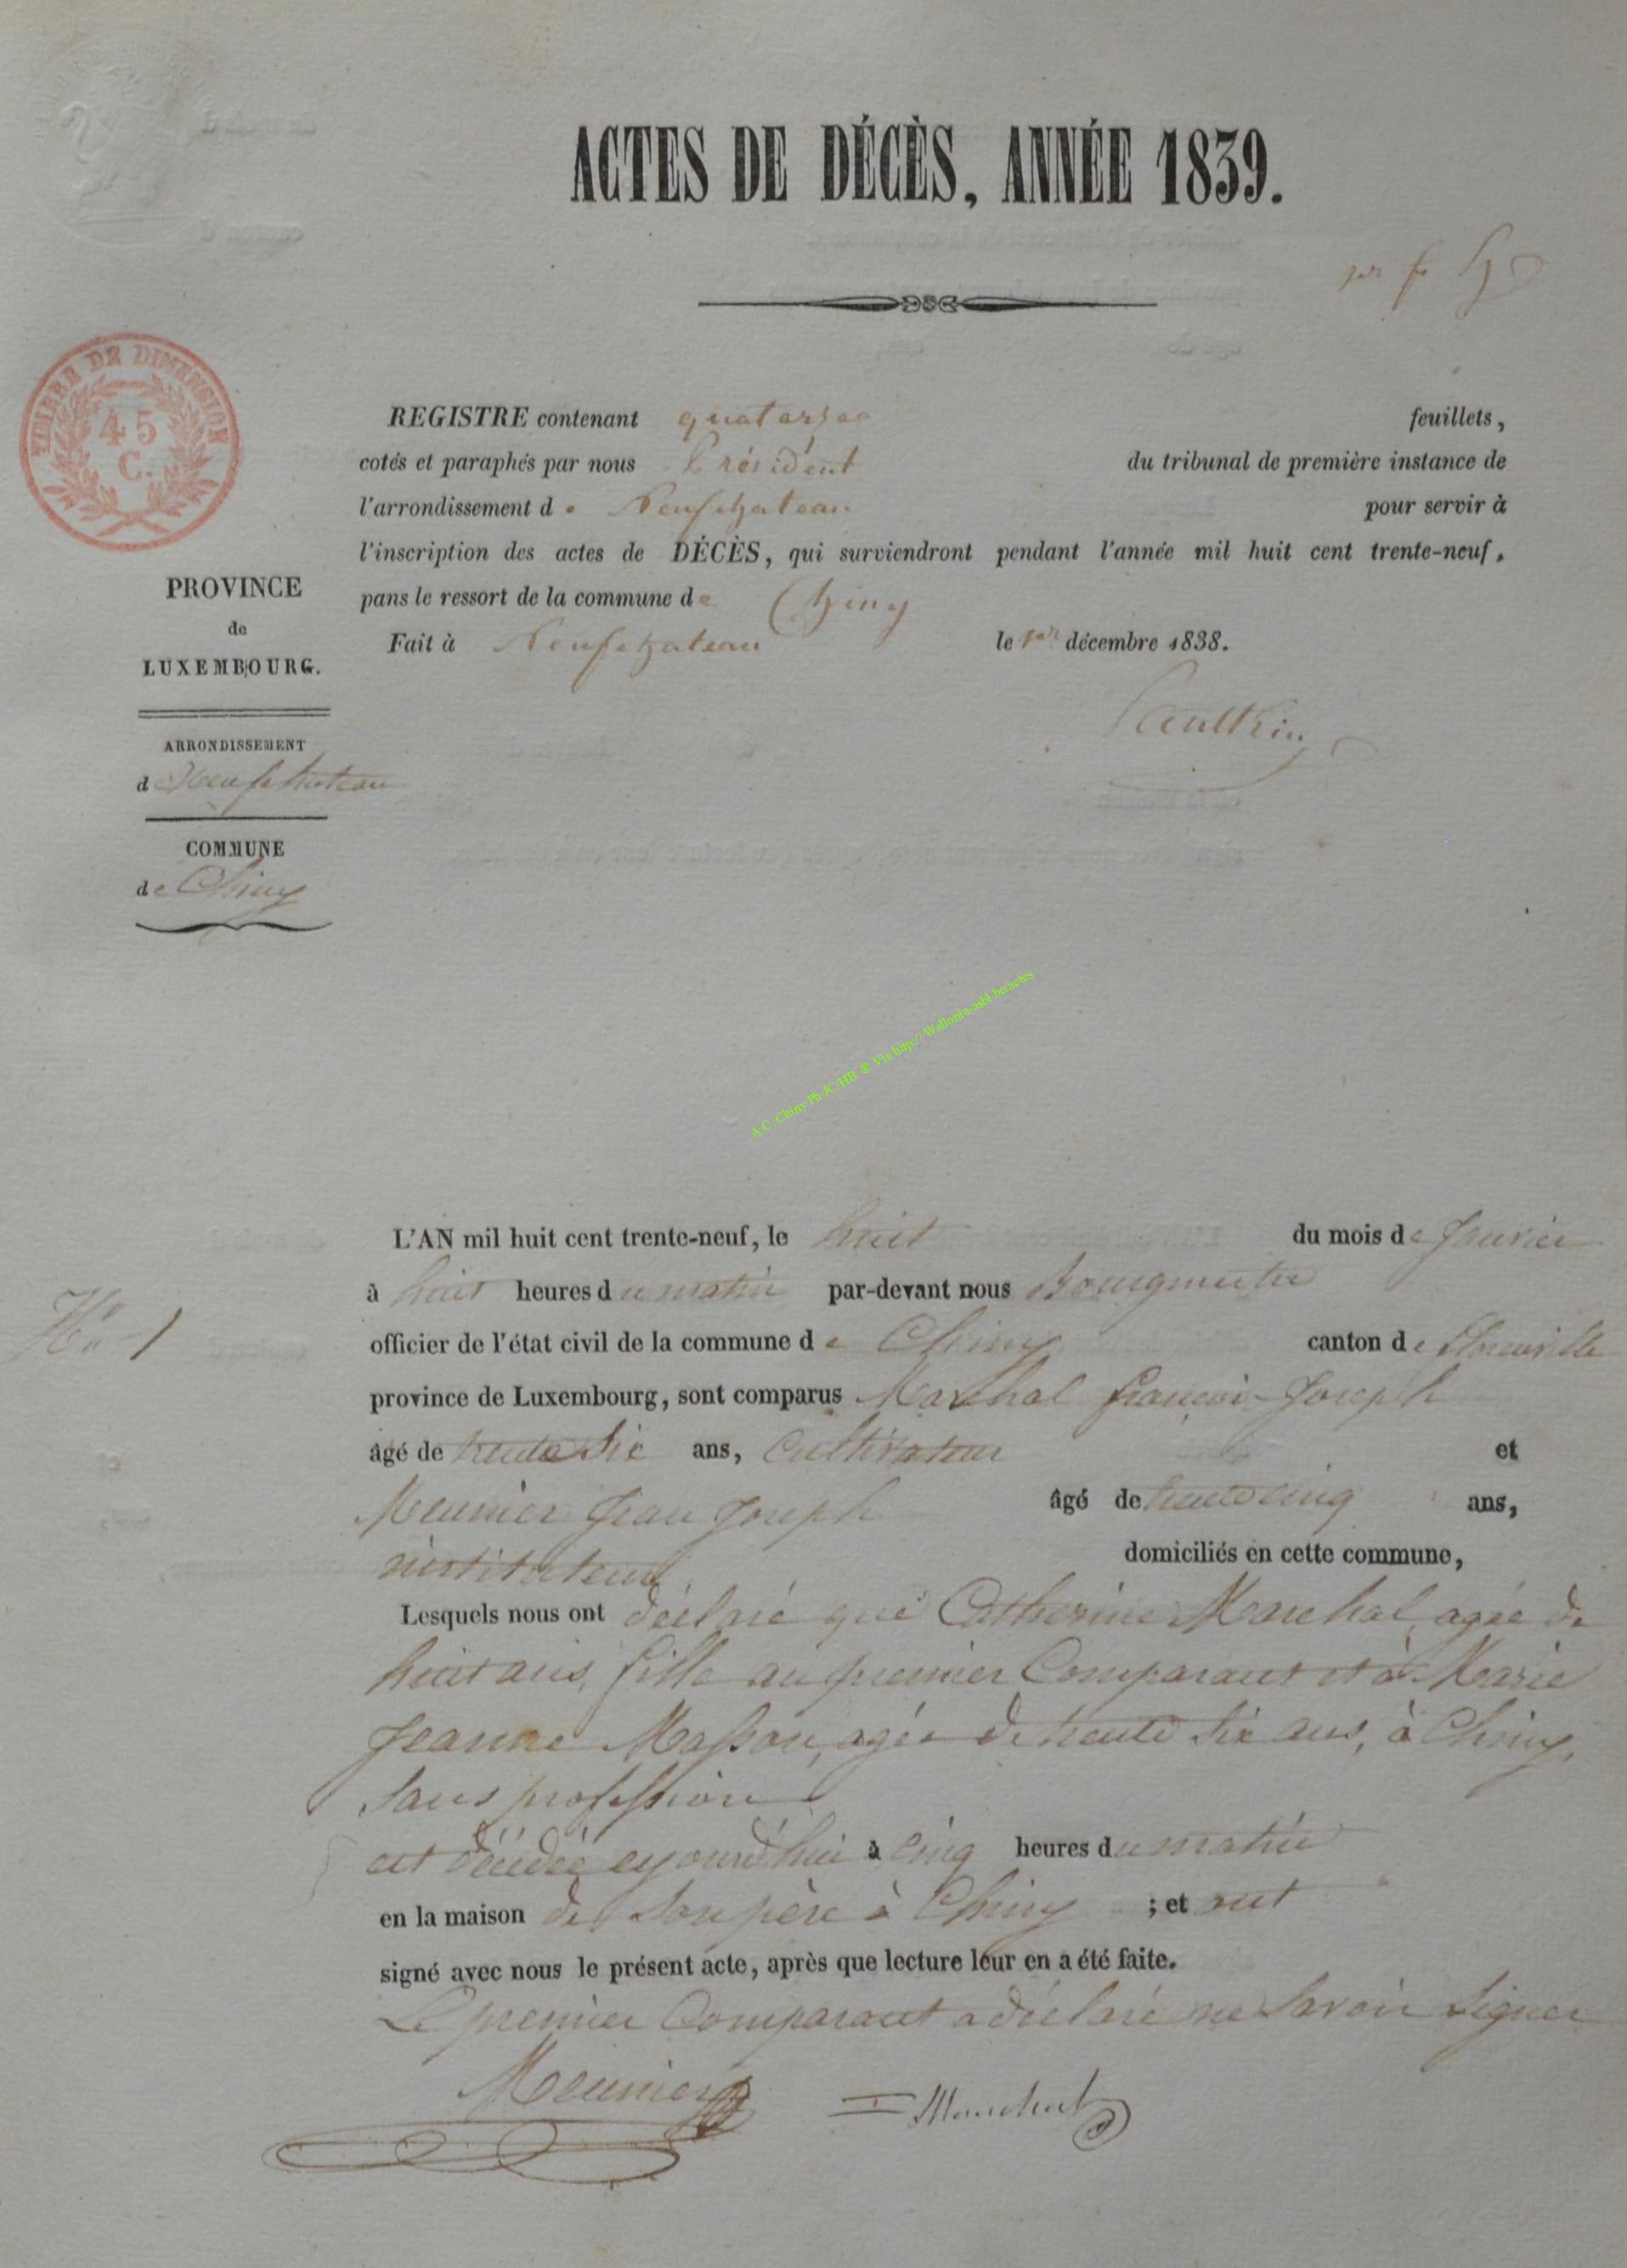 ACTES DE DÉCÈS, ANNÉE 1839.
TIMBRE DE DIMENSION
45
C.
REGISTRE contenant quatorze feuillets,
cotés et paraphés par nous Président du tribunal de première instance de
l'arrondissement de Neufchateau pour servir à
l'inscription des actes de DÉCÈS, qui surviendront pendant l'année mil huit cent trente-neuf,
pans le ressort de la commune de Chiny
Fait à Neufchateau le 1er décembre 1838.
PROVINCE
de
LUXEMBOURG.
ARRONDISSEMENT
d Neufchateau
COMMUNE
de Chiny
A.C. Chiny Ph JC/HB & Via http:// Wallonia-asbl.be/actes
No 1
L'AN mil huit cent trente-neuf, le huit du mois de Janvier
à huit heures du matin par-devant nous Bourgmestre
officier de l'état civil de la commune de Chiny canton de florenville
province de Luxembourg, sont comparus Marchal françois-Joseph
âgé de trente six ans, Cultivateur et
Meunier Jean Joseph âgé de trente cinq ans,
instituteur domiciliés en cette commune,
Lesquels nous ont déclaré que Catherine Marchal, agée de
huit ans, fille au premier Comparant et à Marie
Jeanne Masson, agée de trente six ans, à Chiny,
Sans profession
est décédée aujourd'hui à cinq heures du matin
en la maison de son père à Chiny ; et ont
signé avec nous le présent acte, après que lecture leur en a été faite.
Le premier Comparant a déclaré ne Savoir Signer
Meunier Marchal